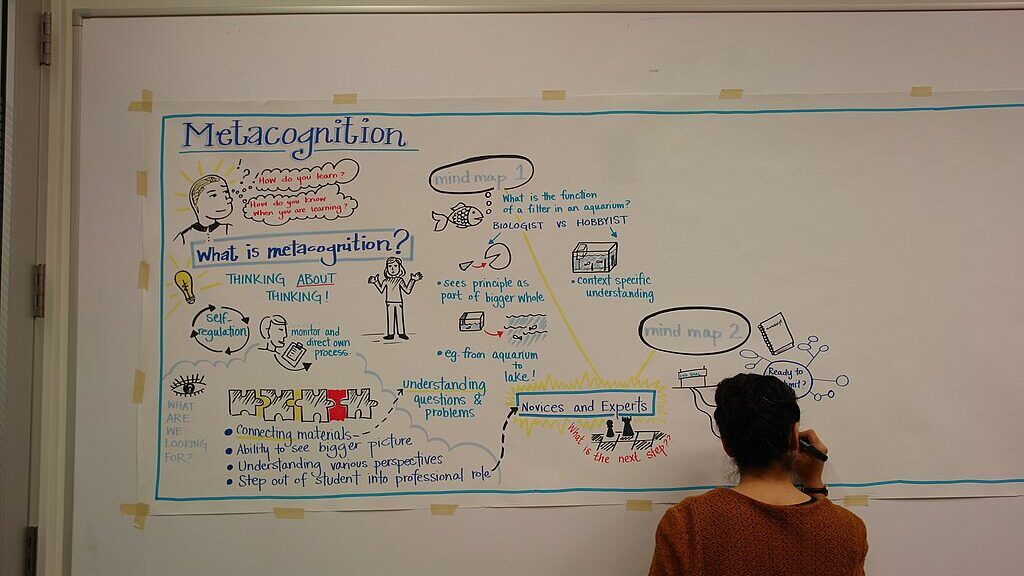 Metacognition
How do you learn?
How do you know
when you are learning?
What is metacognition?
THINKING ABOUT
THINKING!
self-
regulation
monitor and
direct own
process.
WHAT
ARE
WE
LOOKING
FOR?
understanding
questions &
problems
• Connecting materials
• Ability to see bigger picture
• Understanding various perspectives
• Step out of student into professional role
mind map 1
What is the function
of a filter in an aquarium?
BIOLOGIST VS HOBBYIST
• sees principle as
part of bigger whole
• eg. from aquarium
to
lake!
• context specific
understanding
Novices and Experts
What is the next step??
mind map 2
Ready to